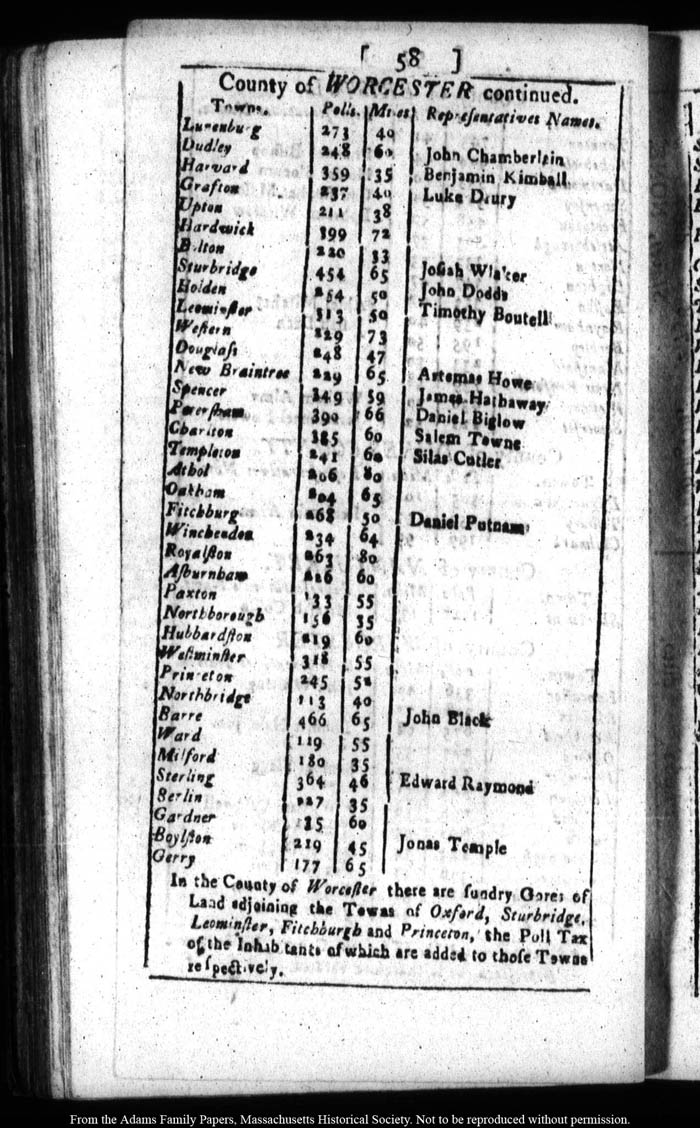 [ 58 ]
County of WORCESTER continued.
Towns. Polls. Miles Representatives Names.
Lunenburg 273 40
Dudley 248 60 John Chamberlain
Harvard 359 35 Benjamin Kimball
Grafton 237 40 Luke Drury
Upton 211 38
Hardwick 399 72
Bolton 220 33
Sturbridge 454 65 Josiah
Holden 254 50 John Dodds
Leominster 313 50 Timothy Boutell
Western 229 73
Douglass 248 47
New Braintree 229 65 Artemas Howe
Spencer 349 59 James Hathaway
Petersham 390 66 Daniel Biglow
Charlton 385 60 Salem Towne
Templeton 241 60 Silas Cutler
Athol 206 80
Oakham 204 65
Fitchburg 268 50 Daniel Putnam
Winchendon 234 64
Royalston 263 80
Ashburnham 226 60
Paxton 133 55
Northborough 156 35
Hubbardston 219 60
Westminster 318 55
Princeton 245 52
Northbridge 113 40
Barre 466 65 John Black
Ward 119 55
Milford 180 35
Sterling 364 46 Edward Raymond
Berlin 127 35
Gardner 135 60
Boylston 219 45 Jonas Temple
Gerry 177 65
In the County of Worcester there are sundry Gores of
Land adjoining the Towns of Oxford, Sturbridge,
Leominster, Fitchburgh and Princeton, the Poll Tax
of the Inhabitants of which are added to those Towns
respectively.
From the Adams Family Papers, Massachusetts Historical Society. Not to be reproduced without permission.